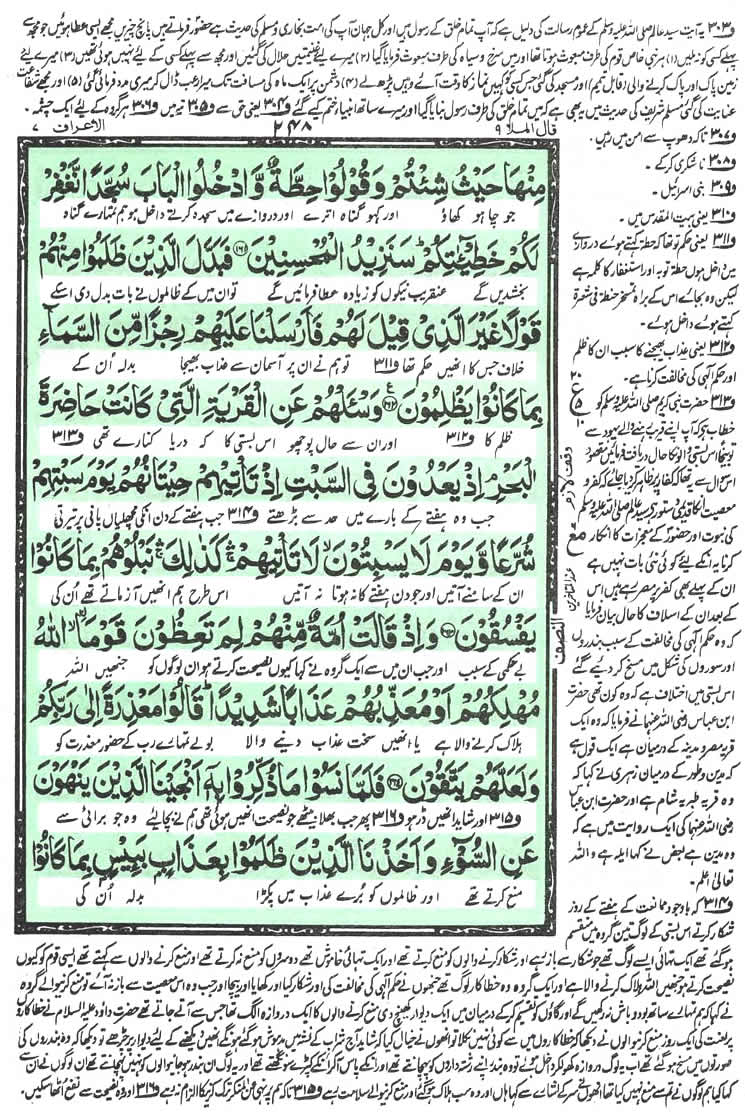 و۳۰۳ یہ آیت سید عالم صلی اللہ علیہ وسلم کے عموم رسالت کی دلیل ہے کہ آپ تمام خلق کے رسول ہیں اور کل جہان آپ کی امت بخاری و مسلم کی حدیث ہے حضور فرماتے ہیں پانچ چیزیں مجھے ایسی عطا ہوئیں جو مجھ سے
پہلے کسی کو نہ ملیں (۱) ہر نبی خاص قوم کی طرف مبعوث ہوتا تھا اور میں سرخ و سیاہ کی طرف مبعوث فرمایا گیا (۲) میرے لئے غنیمتیں حلال کی گئیں اور مجھ سے پہلے کسی کے لئے نہیں ہوئی تھیں (۳) میرے لئے
زمین پاک اور پاک کرنے والی (قابل تیمم) اور مسجد کی گئی جس کسی کو کہیں نماز کا وقت آئے وہیں پڑھ لے (۴) دشمن پر ایک ماہ کی مسافت تک میرا رعب ڈال کر میری مدد فرمائی گئی (۵) اور مجھے شفاعت
عنایت کی گئی مسلم شریف کی حدیث میں یہ بھی ہے کہ میں تمام خلق کی طرف رسول بنایا گیا اور میرے ساتھ انبیاء ختم کیے گئے و۳۰۴ یعنی حق سے و۳۰۵ تیہ میں و۳۰۶ ہر گروہ کے لئے ایک چشمہ۔
قال الملا ۹
۲۴۸
الاعراف ۷
مِنْهَا حَيْثُ شِئْتُمْ وَقُوْلُوْا حِطَّةٌ وَّادْخُلُوا الْبَابَ سُجَّدًا نَّغْفِرْ
جو چاہو کھاؤ اور کہو گناہ اترے اور دروازے میں سجدہ کرتے داخل ہو ہم تمہارے گناہ
لَكُمْ خَطِيْٓــٰٔتِكُمْ سَنَزِيْدُ الْمُحْسِنِيْنَ ۱۶۱ فَبَدَّلَ الَّذِيْنَ ظَلَمُوْا مِنْهُمْ
بخشدیں گے عنقریب نیکوں کو زیادہ عطا فرمائیں گے تو ان میں کے ظالموں نے بات بدل دی اسکے
قَوْلًا غَيْرَ الَّذِيْ قِيْلَ لَهُمْ فَاَرْسَلْنَا عَلَيْهِمْ رِجْزًا مِّنَ السَّمَآءِ
خلاف جس کا انھیں حکم تھا و۳۱۱ تو ہم نے ان پر آسمان سے عذاب بھیجا بدلہ اُن کے
بِمَا كَانُوْا يَظْلِمُوْنَ ۱۶۲ وَسْـَٔلْهُمْ عَنِ الْقَرْيَةِ الَّتِيْ كَانَتْ حَاضِرَةَ
ظلم کا و۳۱۲ اور ان سے حال پوچھو اس بستی کا کہ دریا کنارے تھی و۳۱۳
الْبَحْرِ اِذْ يَعْدُوْنَ فِي السَّبْتِ اِذْ تَاْتِيْهِمْ حِيْتَانُهُمْ يَوْمَ سَبْتِهِمْ
جب وہ ہفتے کے بارے میں حد سے بڑھتے و۳۱۴ جب ہفتے کے دن انکی مچھلیاں پانی پر تیرتی
شُرَّعًا وَّيَوْمَ لَا يَسْبِتُوْنَ لَا تَاْتِيْهِمْ كَذٰلِكَ نَبْلُوْهُمْ بِمَا كَانُوْا
ان کے سامنے آتیں اور جو دن ہفتے کا نہ ہوتا نہ آتیں اس طرح ہم انھیں آزماتے تھے اُن کی
يَفْسُقُوْنَ ۱۶۳ وَاِذْ قَالَتْ اُمَّةٌ مِّنْهُمْ لِمَ تَعِظُوْنَ قَوْمًا اللّٰهُ
بے حکمی کے سبب اور جب ان میں سے ایک گروہ نے کہا کیوں نصیحت کرتے ہو ان لوگوں کو جنھیں اللہ
مُهْلِكُهُمْ اَوْ مُعَذِّبُهُمْ عَذَابًا شَدِيْدًا قَالُوْا مَعْذِرَةً اِلٰى رَبِّكُمْ
ہلاک کرنے والا ہے یا انھیں سخت عذاب دینے والا بولے تمہارے رب کے حضور معذرت کو
وَلَعَلَّهُمْ يَتَّقُوْنَ ۱۶۴ فَلَمَّا نَسُوْا مَا ذُكِّرُوْا بِهٖٓ اَنْجَيْنَا الَّذِيْنَ يَنْهَوْنَ
و۳۱۵ اور شاید انھیں ڈر ہو و۳۱۶ پھر جب بھلا بیٹھے جو نصیحت انھیں ہوئی تھی ہم نے بچا لیے وہ جو برائی سے
عَنِ السُّوْٓءِ وَاَخَذْنَا الَّذِيْنَ ظَلَمُوْا بِعَذَابٍۭ بَىِٕيْسٍۭ بِمَا كَانُوْا
منع کرتے تھے اور ظالموں کو بُرے عذاب میں پکڑا بدلہ اُن کی
و۳۰۷ تاکہ دھوپ سے امن میں رہیں۔
و۳۰۸ ناشکری کر کے۔
و۳۰۹ بنی اسرائیل۔
و۳۱۰ یعنی بیت المقدس میں۔
و۳۱۱ یعنی حکم تو تھا کہ حطۃ کہتے ہوئے دروازے
میں داخل ہوں حطۃ توبہ اور استغفار کا کلمہ ہے
لیکن وہ بجائے اس کے براہ تمسخر حنطۃ فی شعیرۃ
کہتے ہوئے داخل ہوئے۔
و۳۱۲ یعنی عذاب بھیجنے کا سبب ان کا ظلم
اور حکم الٰہی کی مخالفت کرنا ہے۔
و۳۱۳ حضرت نبی کریم صلی اللہ علیہ وسلم کو
خطاب ہے کہ آپ اپنے قریب رہنے والے یہود سے
توبیخاً اس بستی والوں کا حال دریافت فرمائیں مقصود
اس سوال سے یہ تھا کہ کفار پر ظاہر کر دیا جائے کہ کفر و
معصیت ان کا قدیمی دستور ہے سید عالم صلی اللہ علیہ وسلم
کی نبوت اور حضور کے معجزات کا انکار
کرنا یہ ان کے لئے کوئی نئی بات نہیں ہے
ان کے پہلے بھی کفر پر مصر رہے ہیں اس
کے بعد ان کے اسلاف کا حال بیان فرمایا
کہ وہ حکم الٰہی کی مخالفت کے سبب بندروں
اور سوروں کی شکل میں مسخ کر دیئے گئے
اس بستی میں اختلاف ہے کہ وہ کون تھی حضرت
ابن عباس رضی اللہ عنہما نے فرمایا کہ وہ ایک
قریہ مصر و مدینہ کے درمیان ہے ایک قول ہے
کہ مدین و طور کے درمیان زہری نے کہا
کہ وہ قریہ طبریہ شام ہے اور حضرت ابن عباس
رضی اللہ عنہما کی ایک روایت میں ہے کہ
وہ مدین ہے بعض نے کہا ایلہ ہے واللہ
تعالیٰ اعلم۔
و۳۱۴ کہ باوجود ممانعت کے ہفتے کے روز
شکار کرتے اس بستی کے لوگ تین گروہ میں منقسم
۲۰
ع
۵
۱۰
وقف لازم
مع
النصف
ہو گئے تھے ایک تہائی ایسے لوگ تھے جو شکار سے باز رہے اور شکار کرنے والوں کو منع کرتے تھے اور ایک تہائی خاموش تھے دوسروں کو منع نہ کرتے تھے اور منع کرنے والوں سے کہتے تھے ایسی قوم کو کیوں
نصیحت کرتے ہو جنھیں اللہ ہلاک کرنے والا ہے اور ایک گروہ وہ خطا کار لوگ تھے جنھوں نے حکم الٰہی کی مخالفت کی اور شکار کیا اور کھایا اور بیچا اور جب وہ اس معصیت سے باز نہ آئے تو منع کرنیوالے گروہ
نے کہا کہ ہم تمہارے ساتھ بود و باش نہ رکھیں گے اور گاؤں کو تقسیم کر کے درمیان میں ایک دیوار کھینچ دی منع کرنے والوں کا ایک دروازہ الگ تھا جس سے آتے جاتے تھے حضرت داؤد علیہ السلام نے خطا کاروں
پر لعنت کی ایک روز منع کرنیوالوں نے دیکھا کہ خطا کاروں میں سے کوئی نہیں نکلا تو انھوں نے خیال کیا کہ شاید آج شراب کے نشہ میں مدہوش ہو گئے ہونگے انھیں دیکھنے کے لئے دیوار پر چڑھے تو دیکھا کہ وہ بندروں کی
صورتوں میں مسخ ہو گئے تھے اب یہ لوگ دروازہ کھول کر داخل ہوئے تو وہ بندر اپنے رشتہ داروں کو پہچانتے تھے اور انکے پاس آ کر انکے کپڑے سونگھتے تھے اور یہ لوگ ان بندر ہو جانیوالوں کو نہیں پہچانتے تھے ان لوگوں نے ان سے
کہا کیا ہم لوگوں نے تم سے منع نہیں کیا تھا انھوں نے سر کے اشارے سے کہا ہاں اور وہ سب ہلاک ہو گئے اور منع کرنیوالے سلامت رہے و۳۱۵ تاکہ ہم پر نہی عن المنکر ترک کرنیکا الزام نہ رہے و۳۱۶ اور وہ نصیحت سے نفع اٹھا سکیں۔